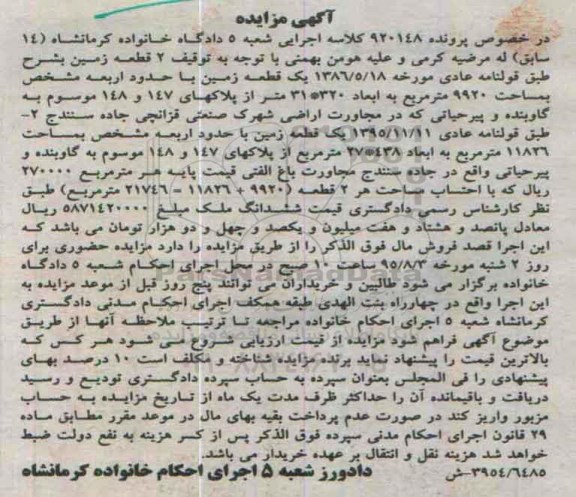 آگهی مزایده
در خصوص پرونده ۹۲۰۱۴۸ کلاسه اجرایی شعبه ۵ دادگاه خانواده کرمانشاه (۱۴
سابق) له مرضیه کرمی و علیه هومن بهمنی با توجه به توقیف ۲ قطعه زمین بشرح
طبق قولنامه عادی مورخه ۱۳۸۶/۵/۱۸ یک قطعه زمین با حدود اربعه مشخص
بمساحت ۹۹۲۰ مترمربع به ابعاد ۳۲۰*۳۱ متر از پلاکهای ۱۴۷ و ۱۴۸ موسوم به
گاوبنده و پیرحیاتی که در مجاورت اراضی شهرک صنعتی قزانچی جاده سنندج ۲-
طبق قولنامه عادی ۱۳۹۵/۱۱/۱۱ یک قطعه زمین با حدود اربعه مشخص بمساحت
۱۱۸۲۶ مترمربع به ابعاد ۴۳۸*۲۷ مترمربع از پلاکهای ۱۴۷ و ۱۴۸ موسوم به گاوبنده و
پیرحیاتی واقع در جاده سنندج مجاورت باغ الفتی قیمت پایه هر مترمربع ۲۷۰۰۰۰
ریال که با احتساب مساحت هر ۲ قطعه (۹۹۲۰ + ۱۱۸۲۶ = ۲۱۷۴۶ مترمربع) طبق
نظر کارشناس رسمی دادگستری قیمت ششدانگ ملک مبلغ ۵۸۷۱۴۲۰۰۰۰ ریال
معادل پانصد و هشتاد و هفت میلیون و یکصد و چهل و دو هزار تومان می باشد که
این اجرا قصد فروش مال فوق الذکر را از طریق مزایده را دارد مزایده حضوری برای
روز ۲ شنبه مورخه ۹۵/۸/۳ ساعت ۱۰ صبح در محل اجرای احکام شعبه ۵ دادگاه
خانواده برگزار می شود طالبین و خریداران می توانند پنج روز قبل از موعد مزایده به
این اجرا واقع در چهارراه بنت الهدی طبقه همکف اجرای احکام مدنی دادگستری
کرمانشاه شعبه ۵ اجرای احکام خانواده مراجعه تا ترتیب ملاحظه آنها از طریق
موضوع آگهی فراهم شود مزایده از قیمت ارزیابی شروع می شود هر کس که
بالاترین قیمت را پیشنهاد نماید برنده مزایده شناخته و مکلف است ۱۰ درصد بهای
پیشنهادی را فی المجلس بعنوان سپرده به حساب سپرده دادگستری تودیع و رسید
دریافت و باقیمانده آن را حداکثر ظرف مدت یک ماه از تاریخ مزایده به حساب
مزبور واریز کند در صورت عدم پرداخت بقیه بهای مال در موعد مقرر مطابق ماده
۲۹ قانون اجرای احکام مدنی سپرده فوق الذکر پس از کسر هزینه به نفع دولت ضبط
خواهد شد هزینه نقل و انتقال بر عهده خریدار می باشد.
۳۹۵۴/۶۴۸۵-ش دادورز شعبه ۵ اجرای احکام خانواده کرمانشاه